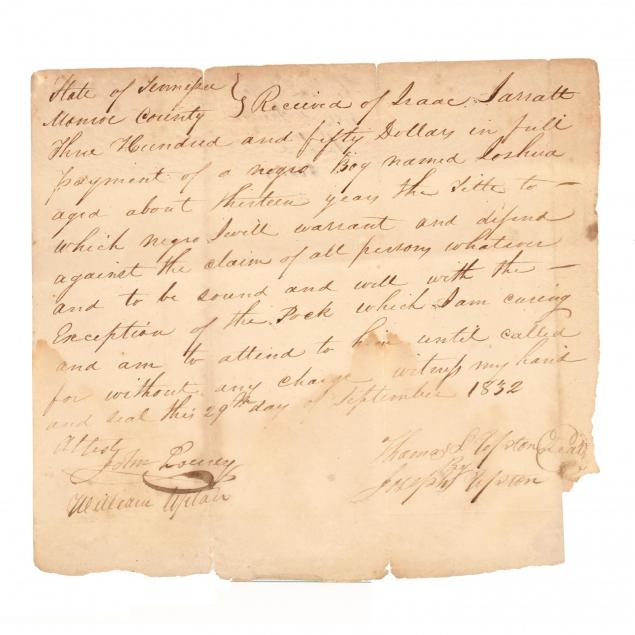 State of Tennessee } Received of Isaac Jarratt
Monroe County
Three Hundred and fifty Dollars in full
payment of a negro Boy named Joshua
aged about thirteen years the Title to —
which negro I will warrant and defend
against the claim of all persons whatever
and to be sound and well with the —
Exception of the Pock which I am curing
and am to attend to him until called
for without any charge witness my hand
and seal this 29th day of September 1832
Attest
John Lowrey
William Upton
Thomas L Upton Seal
By
Joseph Upton